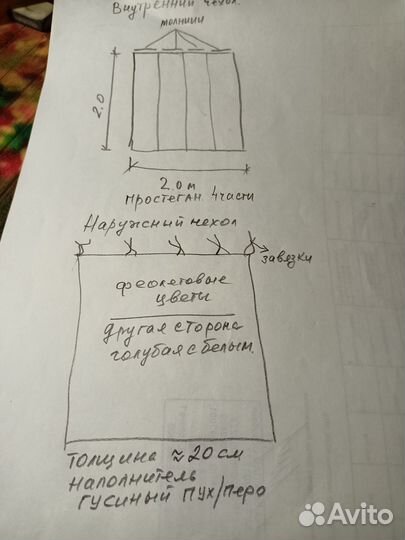 Внутренний чехол.
молнии
2.0
2.0 м
простеган 4 части
Наружный чехол
завязки
феолетовые
цветы
другая сторона
голубая с белым.
толщина ≈ 20 см
наполнитель
гусиный пух/перо
Avito